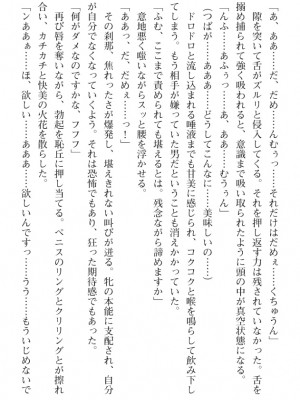 「あ、ああ……だ、だめ……んむぅっ……それだけはだめぇ……くちゅうん」
隙を突いて舌がズルリと侵入してくる。それを押し返す力は残されていなかった。舌を
搦め捕られて強く吸われると、意識まで吸い取られたように頭の中が真空状態になる。
「んふ……あふぅっ……あ、ああ……むぅぅん」
（つばが……あああ……どうしてこんなに……美味しいの……）
ドロドロと流し込まれる唾液までも甘美に感じられ、コクコクと喉を鳴らして飲み下し
てしまう。もう相手が嫌っていた男だということも消えかかっていた。
「ふむ、ここまで責められても堪えるとは。残念ながら諦めますか」
意地悪く嗤いながらスッと腰を浮かせる。
「ああっ、だ、だめぇ……っ！」
その刹那、焦れったさが爆発し、堪えきれない叫びが迸る。牝の本能に支配され、自分
が自分でなくなっていくよう。それは恐怖でもあり、狂った期待感でもあった。
「何がダメなのですかな、フフフ」
再び唇を奪いながら、勃起を恥丘に押し当てる。ペニスのリングとクリリングとが擦れ
合い、カチカチと快美の火花を散らした。
「ンああぁっ……ほ、欲しい……あああ……欲しいんですっ……うう……もういじめないで